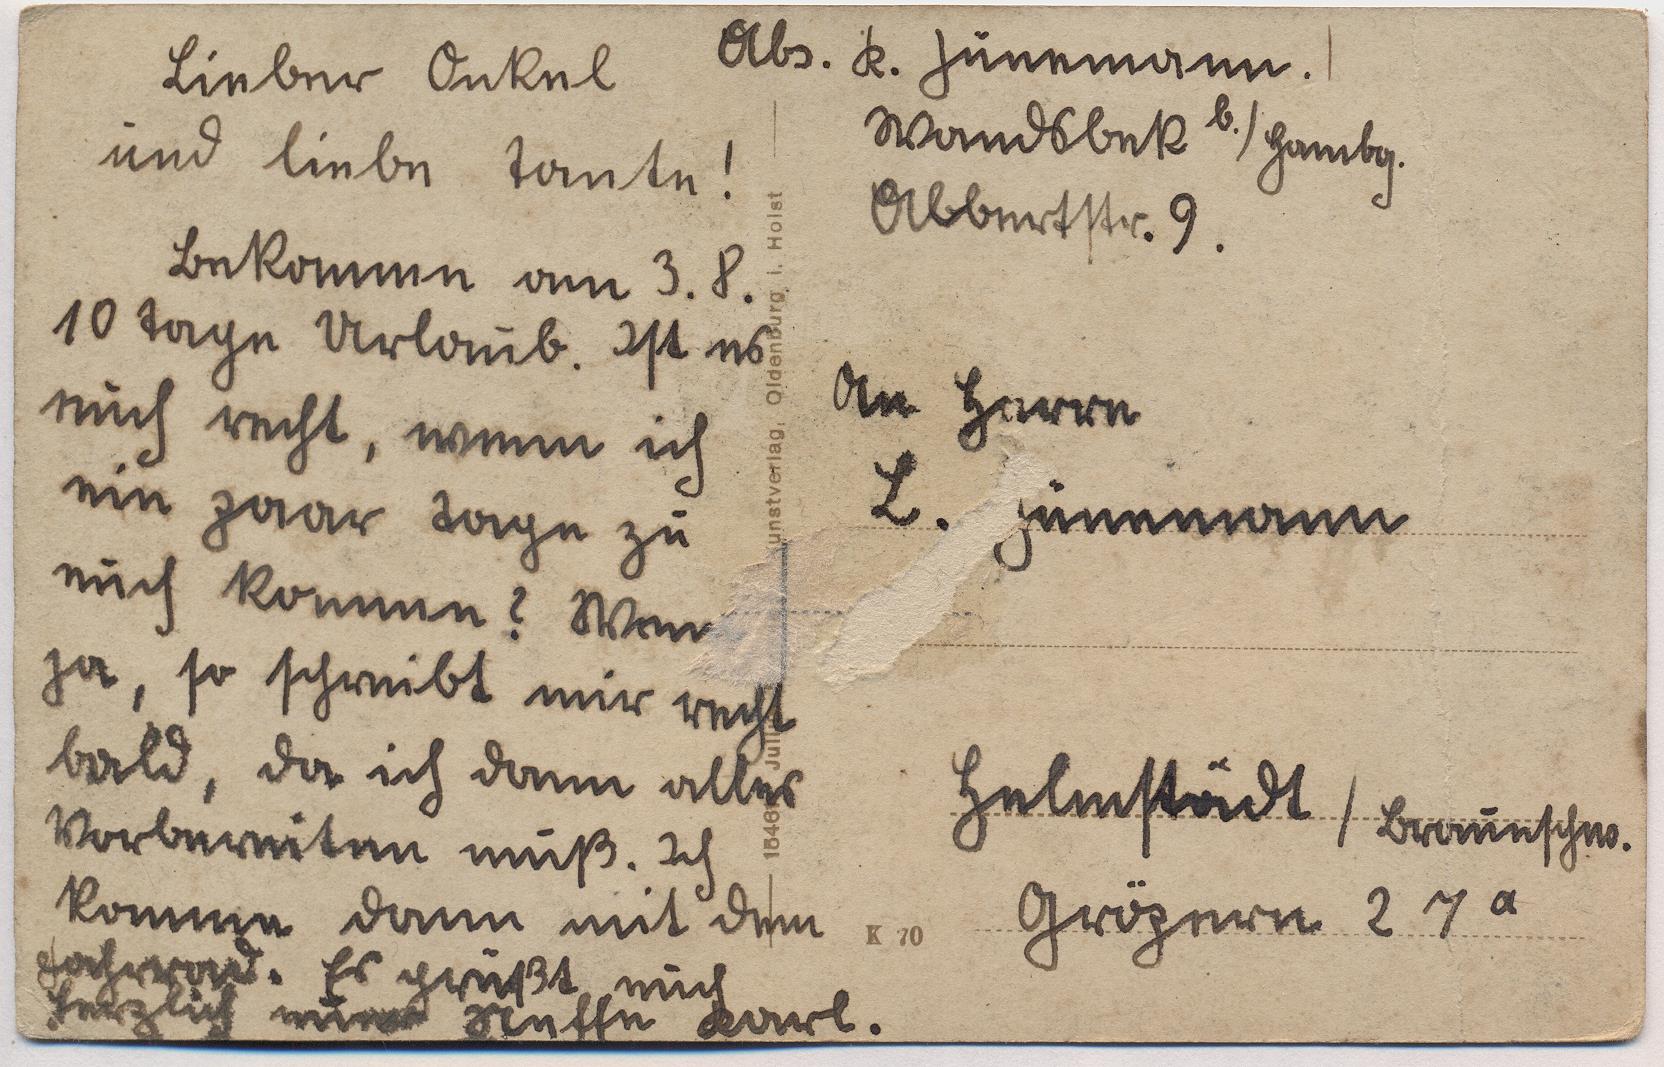 Lieber Onkel
und liebe Tante!
Bekomme am 3. 8.
10 Tage Urlaub. Ist es
euch recht, wenn ich
ein paar Tage zu
euch komme? Wenn
ja, so schreibt mir recht
bald, da ich dann alles
Vorbereiten muß. Ich
komme dann mit dem
Fahrrad. Es grüßt euch
herzlich euer Neffe Karl.
Abs. K. Jünemann.
Wandsbek b./Hambg.
Albertstr. 9.
An Herrn
L. Jünemann
Helmstädt / Braunschw.
Gröpern 27a
unstverlag, Oldenburg i. Holst
K 70